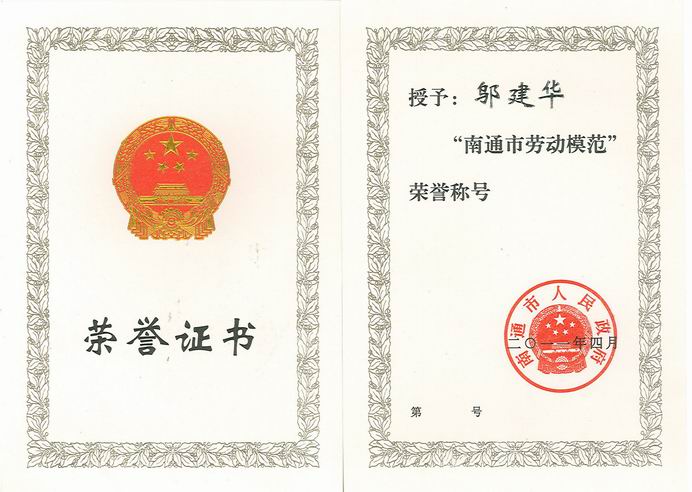 荣誉证书
授予：邬建华
“南通市劳动模范”
荣誉称号
南通市人民政府
二〇一一年四月
第 号